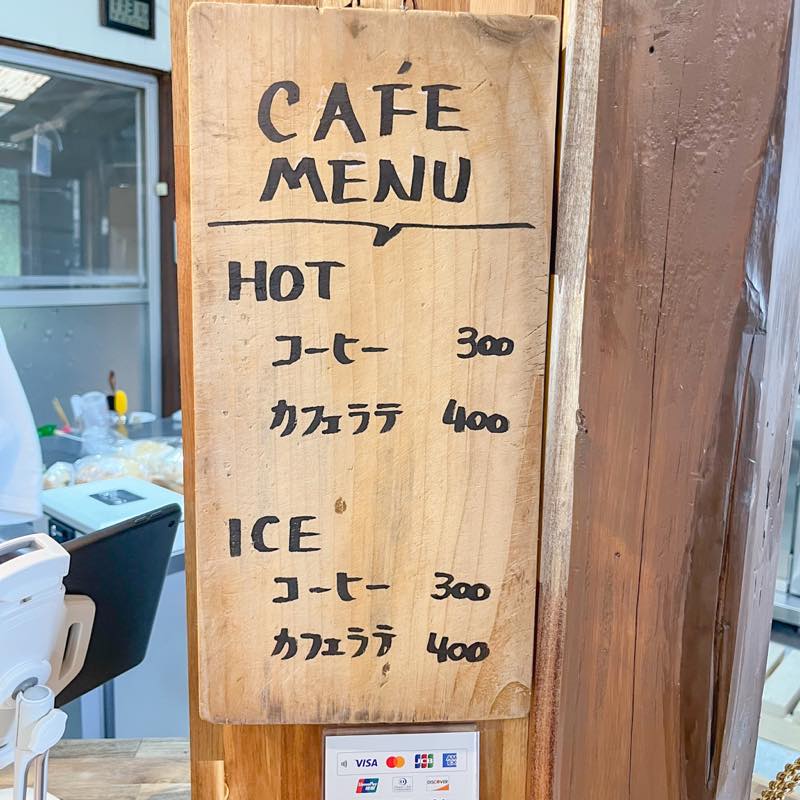 CAFÉ
MENU
HOT
コーヒー 300
カフェラテ 400
ICE
コーヒー 300
カフェラテ 400
VISA JCB
DISCOVER